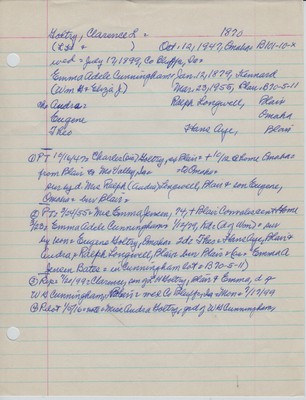 Holtry, Clarence L = 1870
( + ) Oct. 12, 1947, Omaha B101-10-x
wed = July 17, 1899, Co Bluffs, Ia
Emma Adele Cunningham: Jan. 12, 1879, Kennard
(Wm H + Eliza J) Mar. 23, 1955, Blair B70-5-11
ch: Audra = Ralph Longwell, Blair
Eugene Omaha
Theo Hans Aye, Blair
① PT 10/16/47: Charles Holtry, ex Blair + 10/12 @ home Omaha
from Blair to Mo. Valley, to Omaha
surv by d. Mrs. Ralph (Audra) Longwell, Blair + son Eugene,
Omaha = bur Blair
② PT: 3/24/55 = Mrs Emma Jensen, 74, + Blair Convalescent Home
Emma Adele Cunningham 1/12/79, (d of Wm) = surv
by son = Eugene Holtry, Omaha 2ds: Theo = Hans Aye, Blair +
Audra = Ralph Longwell, Blair bur Blair + (= Emma A
Jensen Bates = in Cunningham lot = B70-5-11)
③ Rep: 7/20/99: Clarence, son of Holtry, Blair + Emma, d of
W H Cunningham, Blair = wed Co Bluffs, Ia = Mon. = 7/17/99
④ = Miss Audra Holtry, grd of W H Cunningham,